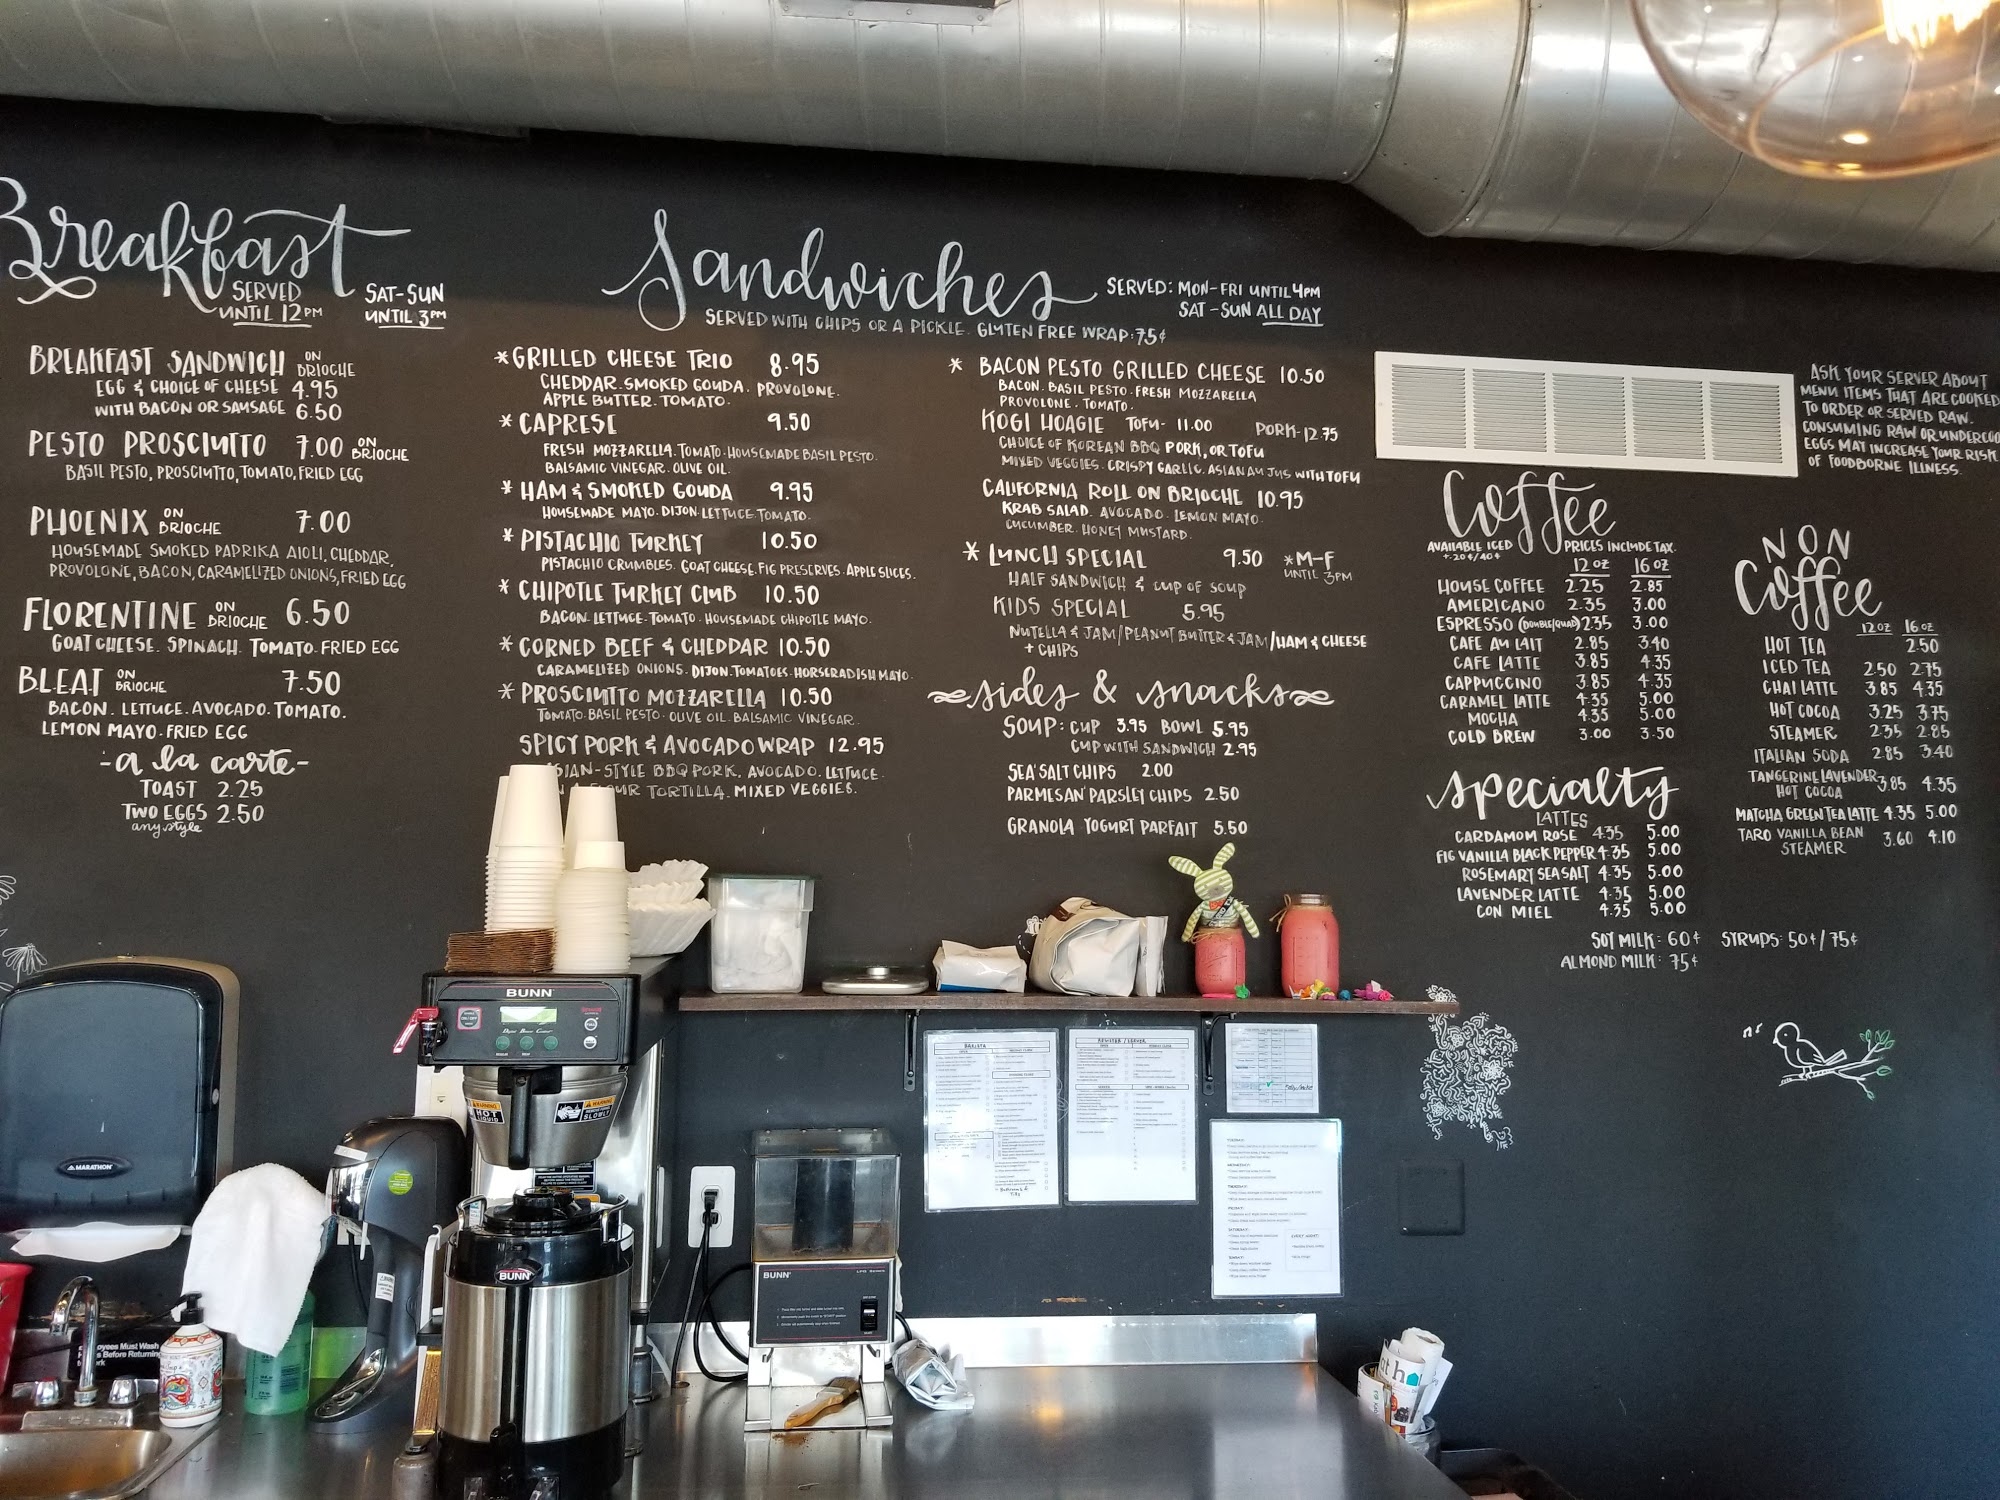 Breakfast
SERVED
UNTIL 12PM
SAT-SUN
UNTIL 3PM
BREAKFAST SANDWICH ON BRIOCHE
EGG & CHOICE OF CHEESE 4.95
WITH BACON OR SAUSAGE 6.50
PESTO PROSCIUTTO 7.00 ON BRIOCHE
BASIL PESTO, PROSCIUTTO, TOMATO, FRIED EGG
PHOENIX ON BRIOCHE 7.00
HOUSEMADE SMOKED PAPRIKA AIOLI, CHEDDAR,
PROVOLONE, BACON, CARAMELIZED ONIONS, FRIED EGG
FLORENTINE ON BRIOCHE 6.50
GOAT CHEESE. SPINACH. TOMATO. FRIED EGG
B.L.E.A.T ON BRIOCHE 7.50
BACON. LETTUCE. AVOCADO. TOMATO.
LEMON MAYO. FRIED EGG
-a la carte-
TOAST 2.25
TWO EGGS 2.50
any style
Sandwiches
SERVED: MON-FRI UNTIL 4PM
SAT-SUN ALL DAY
SERVED WITH CHIPS OR A PICKLE. GLUTEN FREE WRAP: 75¢
*GRILLED CHEESE TRIO 8.95
CHEDDAR. SMOKED GOUDA. PROVOLONE.
APPLE BUTTER. TOMATO.
*CAPRESE 9.50
FRESH MOZZARELLA. TOMATO. HOUSEMADE BASIL PESTO.
BALSAMIC VINEGAR. OLIVE OIL.
*HAM & SMOKED GOUDA 9.95
HOUSEMADE MAYO. DIJON. LETTUCE. TOMATO.
*PISTACHIO TURKEY 10.50
PISTACHIO CRUMBLES. GOAT CHEESE. FIG PRESERVES. APPLE SLICES.
*CHIPOTLE TURKEY CLUB 10.50
BACON. LETTUCE. TOMATO. HOUSEMADE CHIPOTLE MAYO.
*CORNED BEEF & CHEDDAR 10.50
CARAMELIZED ONIONS. DIJON. TOMATOES. HORSERADISH MAYO.
*PROSCIUTTO MOZZARELLA 10.50
TOMATO. BASIL PESTO. OLIVE OIL. BALSAMIC VINEGAR.
SPICY PORK & AVOCADO WRAP 12.95
ASIAN-STYLE BBQ PORK, AVOCADO. LETTUCE.
FLOUR TORTILLA. MIXED VEGGIES.
* BACON PESTO GRILLED CHEESE 10.50
BACON. BASIL PESTO. FRESH MOZZARELLA
PROVOLONE. TOMATO.
KOGI HOAGIE TOFU- 11.00 PORK-12.75
CHOICE OF KOREAN BBQ PORK, OR TOFU
MIXED VEGGIES. CRISPY GARLIC. ASIAN AU JUS WITH TOFU
CALIFORNIA ROLL ON BRIOCHE 10.95
KRAB SALAD. AVOCADO. LEMON MAYO.
CUCUMBER. HONEY MUSTARD.
* LUNCH SPECIAL 9.50 *M-F
UNTIL 3PM
HALF SANDWICH & CUP OF SOUP
KIDS SPECIAL 5.95
NUTELLA & JAM/PEANUT BUTTER & JAM/HAM & CHEESE
+ CHIPS
sides & snacks
SOUP: CUP 3.95 BOWL 5.95
CUP WITH SANDWICH 2.95
SEA SALT CHIPS 2.00
PARMESAN PARSLEY CHIPS 2.50
GRANOLA YOGURT PARFAIT 5.50
ASK YOUR SERVER ABOUT
MENU ITEMS THAT ARE COOKED
TO ORDER OR SERVED RAW.
CONSUMING RAW OR UNDERCOO
EGGS MAY INCREASE YOUR RISK
OF FOODBORNE ILLNESS.
Coffee
AVAILABLE ICED
+.20¢/40¢
PRICES INCLUDE TAX.
12 OZ 16 OZ
HOUSE COFFEE 2.25 2.85
AMERICANO 2.35 3.00
ESPRESSO (DOUBLE/QUAD) 2.35 3.00
CAFE AU LAIT 2.85 3.40
CAFE LATTE 3.85 4.35
CAPPUCCINO 3.85 4.35
CARAMEL LATTE 4.35 5.00
MOCHA 4.35 5.00
COLD BREW 3.00 3.50
specialty
LATTES
CARDAMOM ROSE 4.35 5.00
FIG VANILLA BLACK PEPPER 4.35 5.00
ROSEMARY SEA SALT 4.35 5.00
LAVENDER LATTE 4.35 5.00
CON MIEL 4.35 5.00
NON
Coffee
12 OZ 16 OZ
HOT TEA 2.50
ICED TEA 2.50 2.75
CHAI LATTE 3.85 4.35
HOT COCOA 3.25 3.75
STEAMER 2.35 2.85
ITALIAN SODA 2.85 3.40
TANGERINE LAVENDER HOT COCOA 3.85 4.35
MATCHA GREEN TEA LATTE 4.35 5.00
TARO VANILLA BEAN STEAMER 3.60 4.10
SOY MILK: 60¢ SYRUPS: 50¢/75¢
ALMOND MILK: 75¢
BUNN
WARNING
HOT
LIQUID
WARNING
SLOWLY
BUNN
BUNN
MARATHON
BARISTA
REGISTER / SERVER
TUESDAY:
WEDNESDAY:
THURSDAY:
FRIDAY:
SATURDAY:
SUNDAY:
oyees Must Wash
s Before Returning